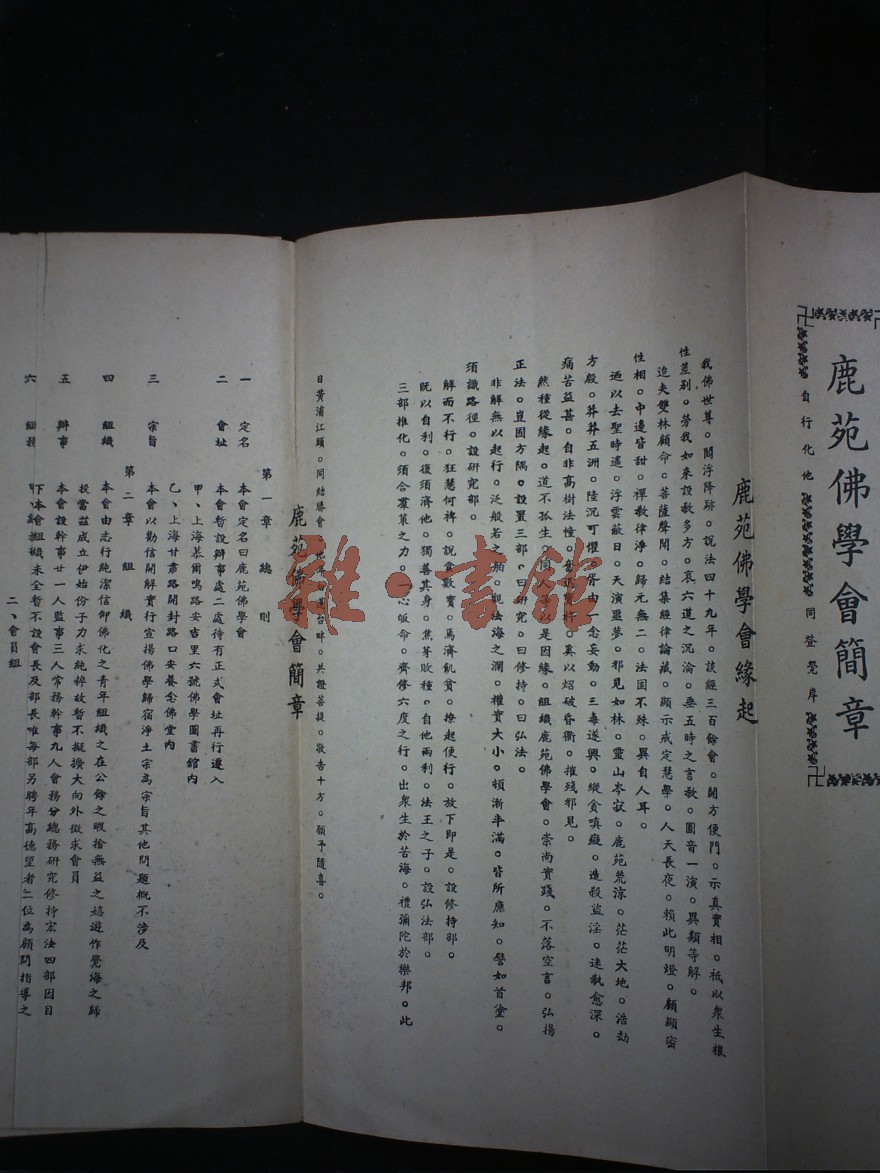 鹿苑佛學會簡章
自行化他
同登覺岸
鹿苑佛學會緣起
我佛世尊。閻浮降跡。說法四十九年。談經三百餘會。開方便門。示真實相。祇以衆生根
性差別。勞我如來設教多方。哀六道之沉淪。垂五時之言教。圓音一演。異類等解。
迨夫雙林顧命。菩薩聲聞。結集經律論藏。顯示戒定慧學。人天長夜。賴此明燈。顧顯密
性相。中邊皆甜。禪教律淨。歸元無二。法固不殊。異自人耳。
迺以去聖時遙。浮雲蔽日。天演噩夢。邪見如林。靈山岑寂。鹿苑荒涼。茫茫大地。浩劫
方殷。莽莽五洲。陸沉可懼。胥由一念妄動。三毒遂興。縱貪嗔癡。造殺盜淫。迷執愈深。
痛苦益甚。自非高樹法幢。奚以炤破昏衢。摧殘邪見。
然種從緣起。道不孤生。同人等以是因緣。組織鹿苑佛學會。崇尚實踐。不落空言。弘揚
正法。豈囿方隅。設置三部。曰研究。曰修持。曰弘法。
非解無以起行。泛般若之船。觀法海之瀾。權實大小。頓漸半滿。皆所應知。譬如首塗。
須識路徑。設研究部。
解而不行。狂慧何裨。說食數寶。焉濟飢貧。撩起便行。放下即是。設修持部。
既以自利。復須濟他。獨善其身。焦芽敗種。自他兩利。法王之子。設弘法部。
三部推化。須合羣策之力。一心皈命。齊修六度之行。出衆生於苦海。禮彌陀於樂邦。此
日黃浦江頭。同結勝會。蓮台畔。共證菩提。敬告十方。願予隨喜。
鹿苑佛學會簡章
第一章 總則
一 定名 本會定名曰鹿苑佛學會
二 會址 本會暫設辦事處二處待有正式會址再行遷入
甲、上海慕爾鳴路安吉里六號佛學圖書館內
乙、上海甘肅路開封路口安養念佛堂內
三 宗旨 本會以勸信開解實行宣揚佛學歸宿淨土宗為宗旨其他問題概不涉及
第二章 組織
四 組織 本會由志行純潔信仰佛化之青年組織之在公餘之暇捨無益之嬉遊作覺海之歸
投當茲成立伊始份子力求純粹故暫不擬擴大向外徵求會員
五 辦事 本會設幹事廿一人監事三人常務幹事九人會務分總務研究修持宏法四部因目
下本會組織未全暫不設會長及部長唯每部另聘年高德望者二位為顧問指導之
六 組務
二、會員組
雜·書館